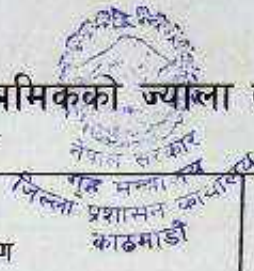 ज्याला
नेपाल सरकार
गृह मन्त्रालय
जिल्ला प्रशासन कार्यालय
काठमाडौं
ण